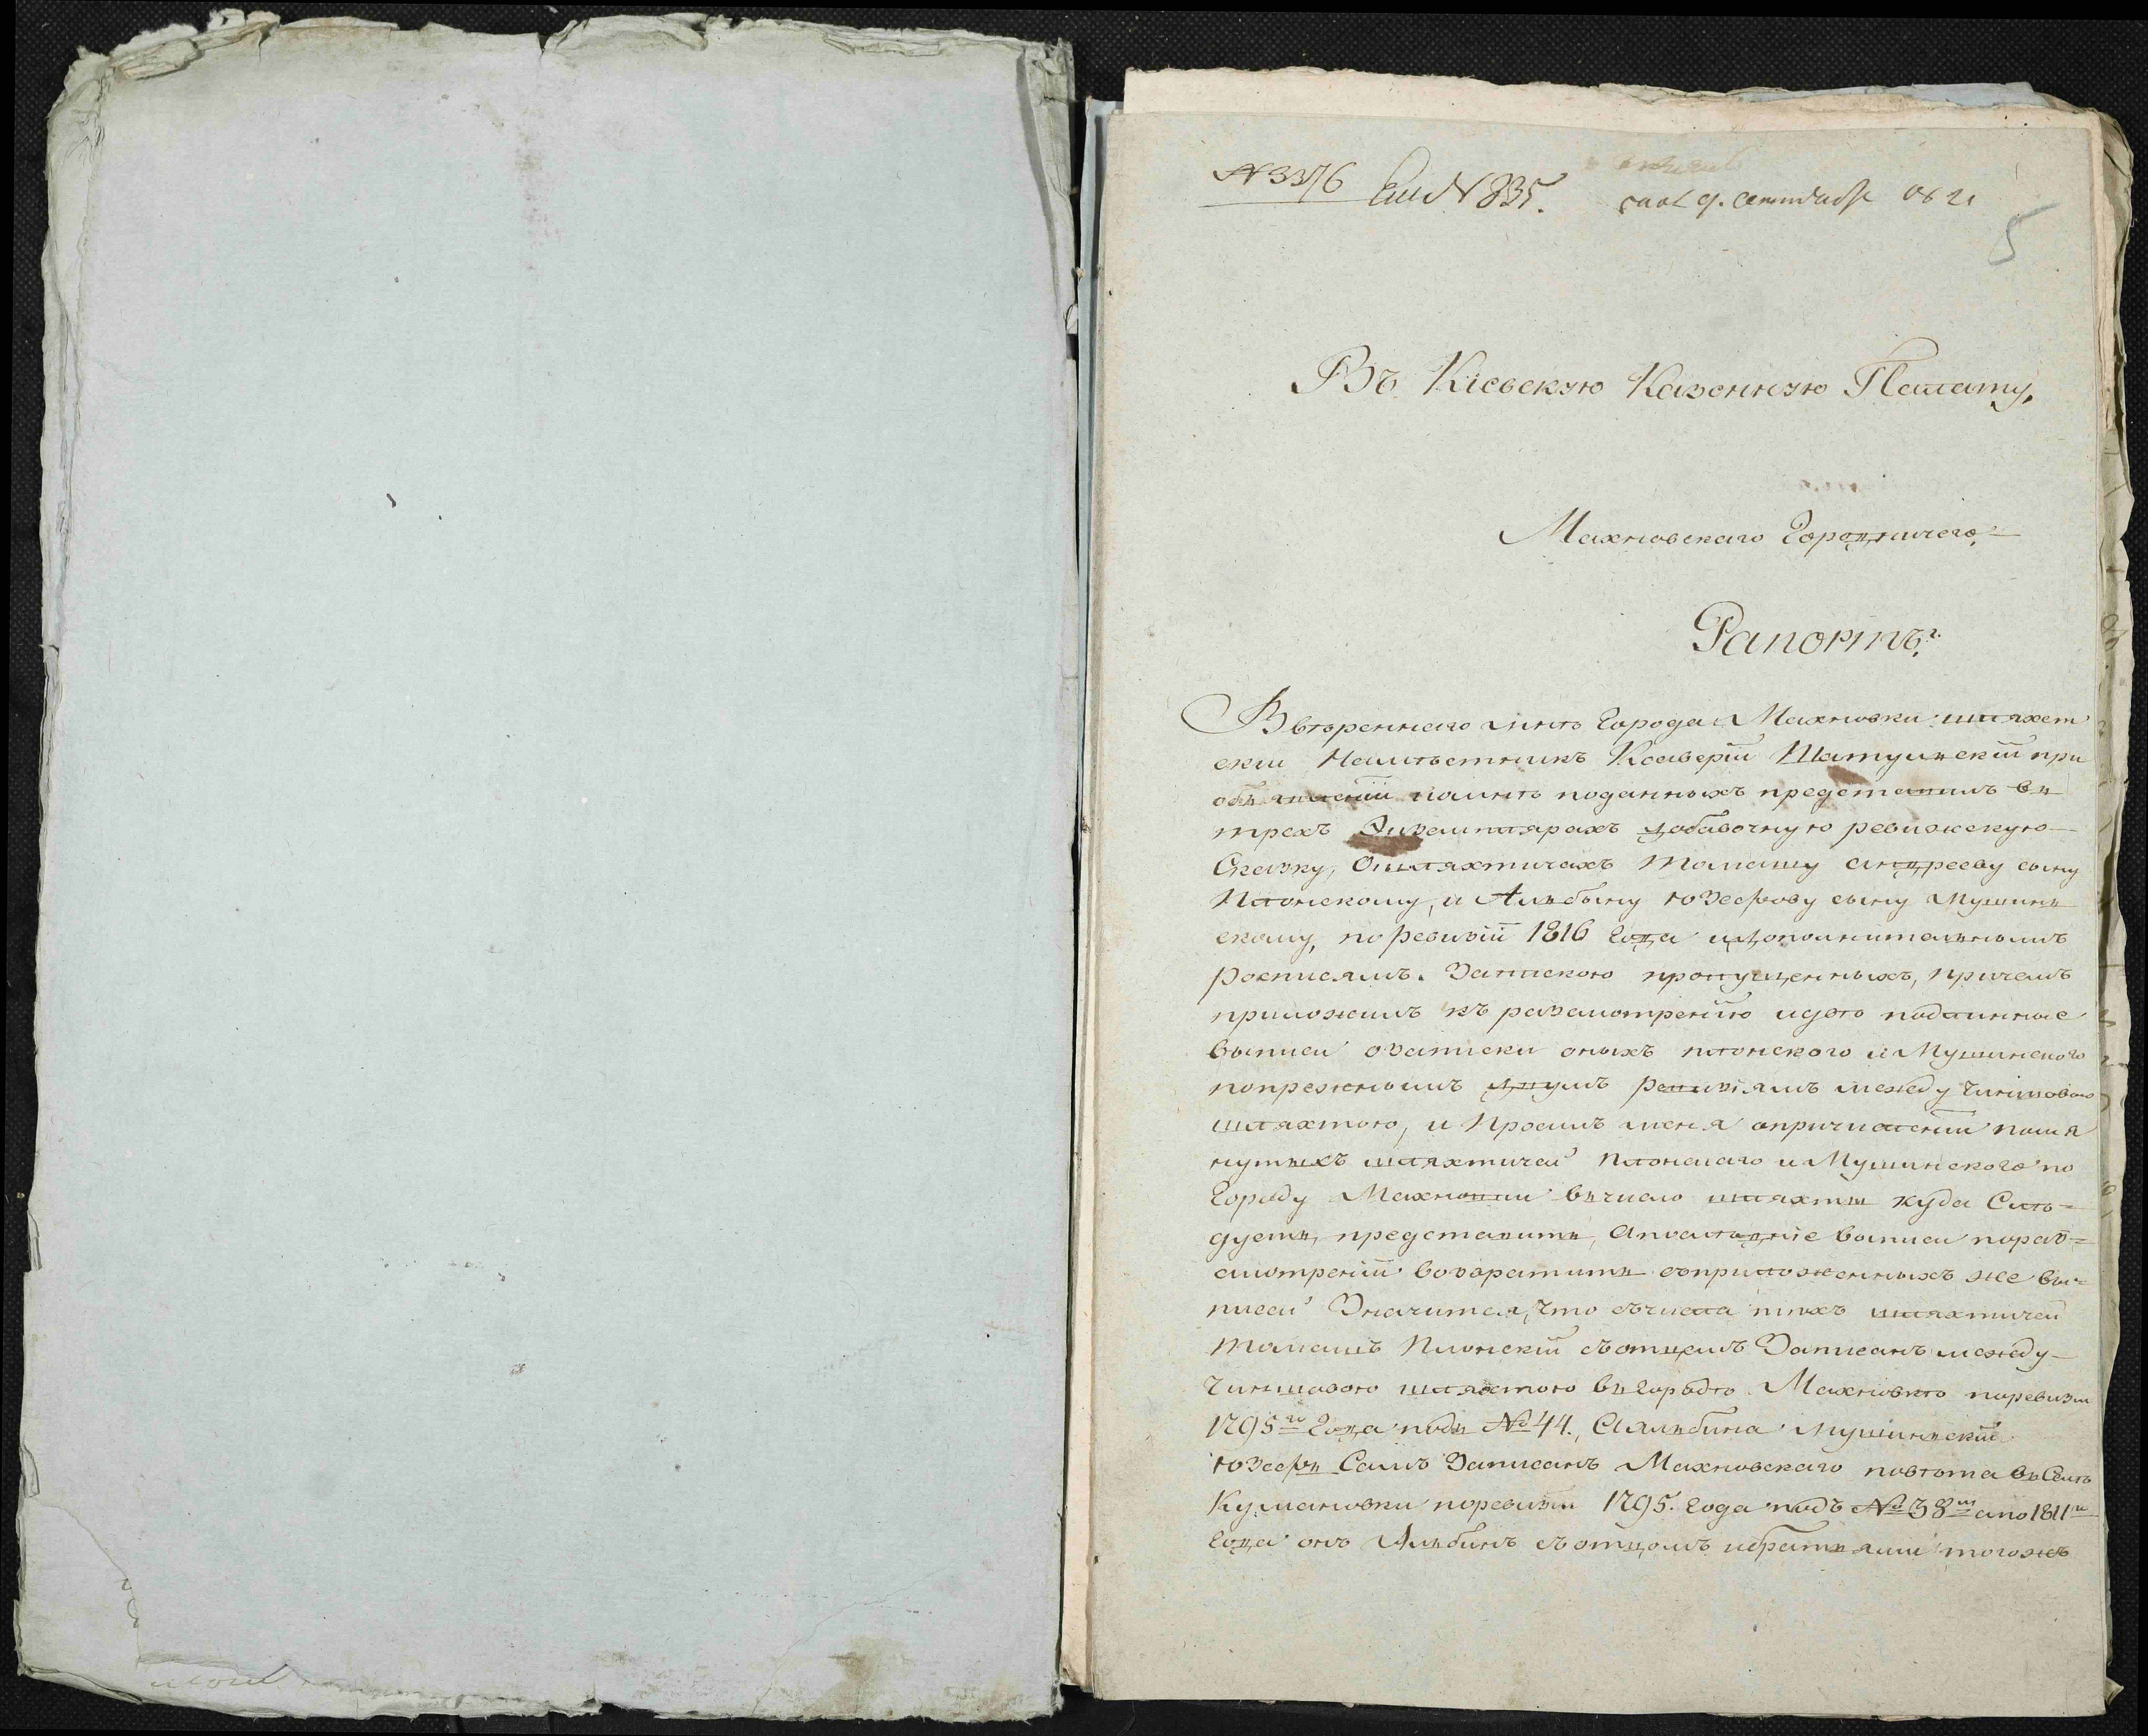 № 3376
№ 835.
5
Въ Кіевскую Казенную Палату,
Махновскаго Городничего
Рапортъ.
Ввѣреннаго мнѣ Города Махновки шляхет
скій Намѣстникъ Ксаверій Шатулнскій при
объявленій памнѣ поданныхъ представилъ въ
трехъ Экземплярахъ добавочную ревижскую
Скаску, Ошляхтичахъ Томашу андрееву сыну
Плонскому, и Альбыну юзефову сыну Мушинь
скому, поревизій 1816 Года идополнительнымъ
росписямъ. Запискою пропущенныхъ, причемъ
приложилъ къ разсмотренію идѣто подлинные
выписи озаписки оныхъ плонского и Мушинского
попрежнымъ двумъ ревизіямъ между чиншовою
шляхтою, и Просилъ меня опричислении помя
нутыхъ шляхтичей Плонскаго и Мушинского по
Городу Махновки въчисло шляхты куда Слѣ=
дуетъ, представить, апослѣдніе выписи пораз=
смотреній возвратить съприложенныхъ же вы=
писей Значится, что съчисла тѣхъ шляхтичей
Томашъ Плонскій съотцемъ Записанъ между
Чиншовою шляхтою въгородѣ Махновкѣ поревизи
1795го Года подъ № 44., Сляльбина Мушинскій
юзефъ Самъ Записанъ Махновскаго повѣта въ Селѣ
Кумановки поревизи 1795. Года подъ № 38м апо 1811м
Года онъ Альбинъ съотцомъ ибратьями тогожъ